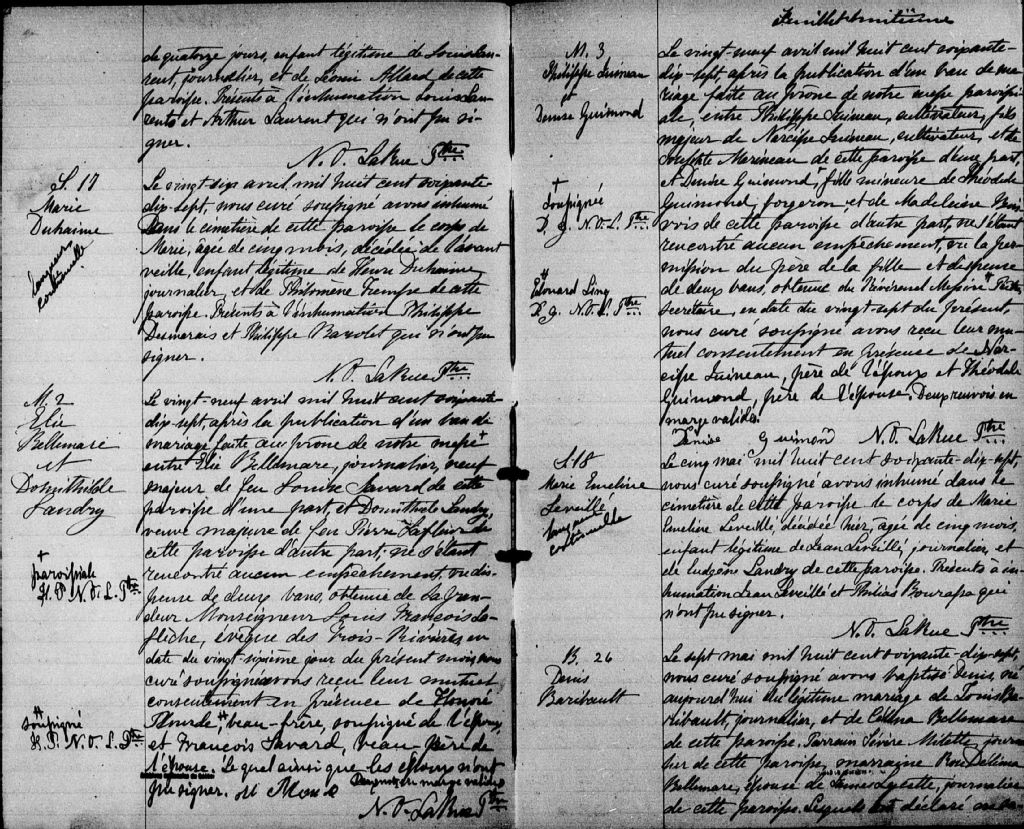 de quatorze jours, enfant légitime de Louis Lau-
rent, journalier, et de Léonie Allard de cette
paroisse. Présents à l'inhumation Louis Lau-
rent et Arthur Laurent qui n'ont pu si-
gner.
N. O. LaRue Ptre
S. 17
Marie
Duhaime
Langueur
continuelle
Le vingt-six avril, mil huit cent soixante-
dix-sept, nous curé soussigné avons inhumé
dans le cimetière de cette paroisse le corps de
Marie, âgée de cinq mois, décédée de l'avant
veille, enfant légitime de Henri Duhaime,
journalier, et de Philomène de cette
paroisse. Présents à l'inhumation Philippe
Desmarais et Philippe qui n'ont pu
signer.
N. O. LaRue Ptre
M. 2
Elie
Bellemare
et
Domithilde
Landry
+
paroissiale
H. P. N. O. L. Ptre
++
soussigné
H. P. N. O. L. Ptre
Le vingt-neuf avril mil huit cent soixante
dix-sept, après la publication d'un ban de
mariage faite au prone de notre messe +
entre Elie Bellemare, journalier, veuf
majeur de feu Louise Savard de cette
paroisse d'une part, et Domithilde Landry,
veuve majeure de feu Pierre de
cette paroisse d'autre part; ne s'étant
rencontré aucun empêchement, vu dis-
pense de deux bans, obtenue de Sa Gran-
deur Monseigneur Louis François La-
flèche, évêque des Trois-Rivières, en
date du vingt-sixième jour du présent mois, nous
curé soussigné avons recu leur mutuel
consentement en présence de Honoré
Plourde, ++ beau-frère, soussigné de l'époux,
et François Savard, beau-père de
l'épouse. Lequel ainsi que les époux n'ont
pu signer. Deux renvois en marge valides
N. O. LaRue Ptre
Feuillet huitième
M. 3
Philippe Juineau
et
Denise Guimond
+
soussignée
D. G. N. O. L. Ptre
D. G. N. O. L. Ptre
Le vingt-neuf avril mil huit cent soixante-
dix-sept, après la publication d'un ban de ma-
riage faite au prône de notre messe paroissi-
ale, entre Philippe Juineau, cultivateur, fils
majeur de Narcisse Juineau, cultivateur, et de
Josephte Marineau de cette paroisse d'une part,
et Denise Guimond + fille mineure de Théodule
Guimond, forgeron, et de Madeleine
de cette paroisse d'autre part, ne s'étant
rencontré aucun empêchement, vu la per-
mission du père de la fille et dispense
de deux bans, obtenue du Révérend Messire ++
secrétaire, en date du vingt-sept du présent,
nous curé soussigné avons reçu leur mu-
tuel consentement en présence de Nar-
cisse Juineau, père de l'époux et Théodule
Guimond, père de l'épouse. Deux renvois en
marge valides.
Denise Guimond N. O. LaRue Ptre
S. 18
Marie Emeline
Leveillé
Langueur
continuelle
Le cinq mai mil huit cent soixante-dix-sept,
nous curé soussigné avons inhumé dans le
cimetière de cette paroisse le corps de Marie
Emeline Leveillé, décédée hier, agée de cinq mois,
enfant légitime de Jean Leveillé, journalier, et
de Ludgène Landry de cette paroisse. Présents à in-
humation Jean Leveillé et Philias Bourassa qui
n'ont pu signer.
N. O. LaRue Ptre
B. 26
Denis
Baribault
Le sept mai mil huit cent soixante-dix-sept,
nous curé soussigné avons baptisé Denis, né
aujourd'hui du légitime mariage de Louis Ba-
ribault, journalier, et de Célina Bellemare
de cette paroisse. Parrain Sévère Milette, journa-
lier de cette paroisse, marraine Rose Délima
Bellemare, épouse de journalier
de cette paroisse. Lesquels ont déclaré ne sa-